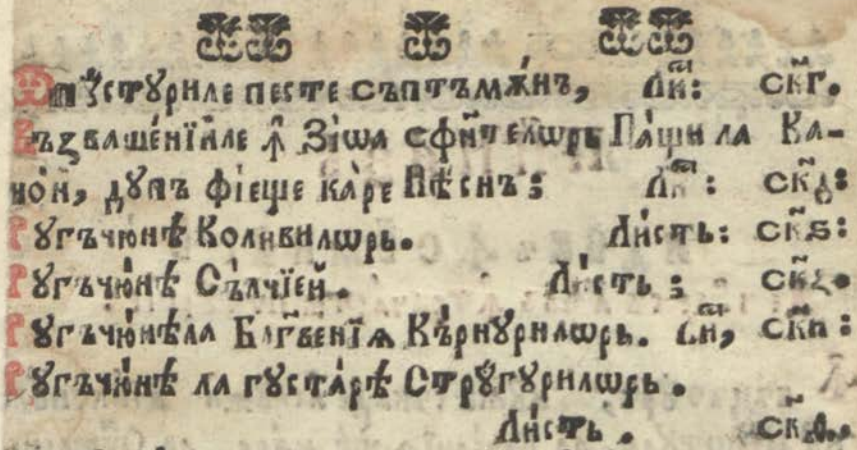 Ѿпꙋстꙋриле песте съптъмѫ́нъ, Ли҇: СК҃Г.
Възвашéнїиле ꙟ҆ Зїѡа сфи́нтелѡрь Па́щи ла Ка-
но́н, дꙋпъ фїеще ка́ре Пѣ́снъ: Ли҇: СК҃Д:
Рꙋгъчю́нѣ Коливилѡрь. Ли́сть: СК҃Ѕ:
Рꙋгъчю́не Съ́лчїей. Ли́сть: СК҃З.
Рꙋгъчю́нѣ ла Блг҇венїѧ Къ́рнꙋрилѡрь. Ли҇, СК҃И:
Рꙋгъчю́нѣ ла гꙋста́рѣ Стрꙋ́гꙋрилѡрь.
Ли́сть. СК҃Ѳ.